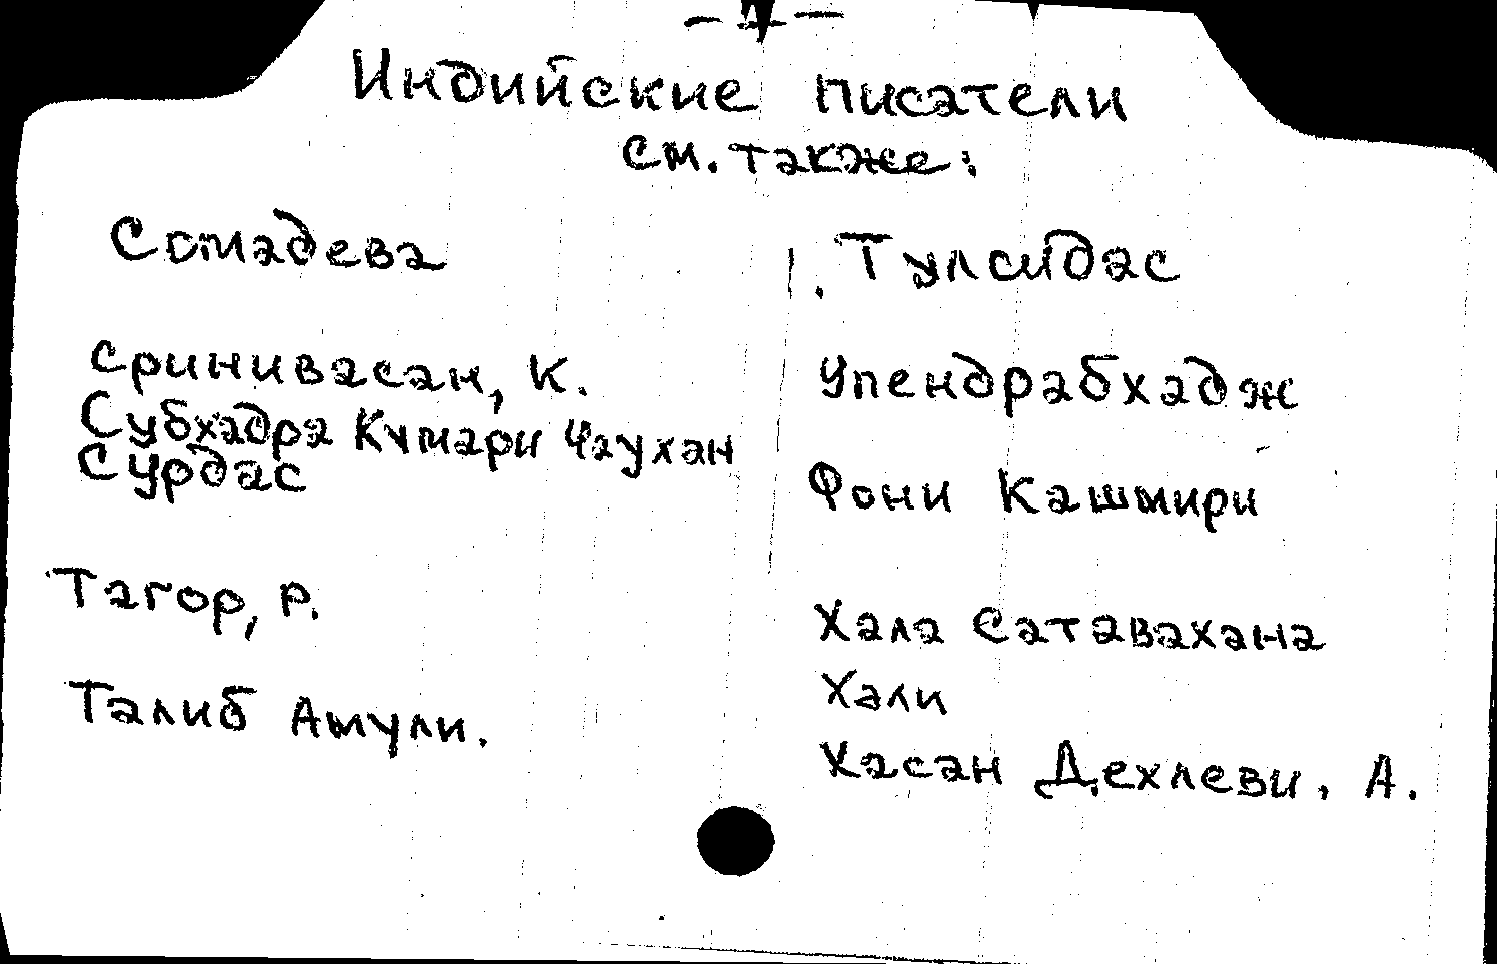 Индийские писатели
см. также:
Сомадева
Сринивасан, К.
Субхадра Кумари Чаухан
Сурдас
Тагор, Р.
Талиб Амули.
Тулсидас
Упендрабхадж
Фони Кашмири
Хала Сатавахана
Хали
Хасан Дехлеви, А.